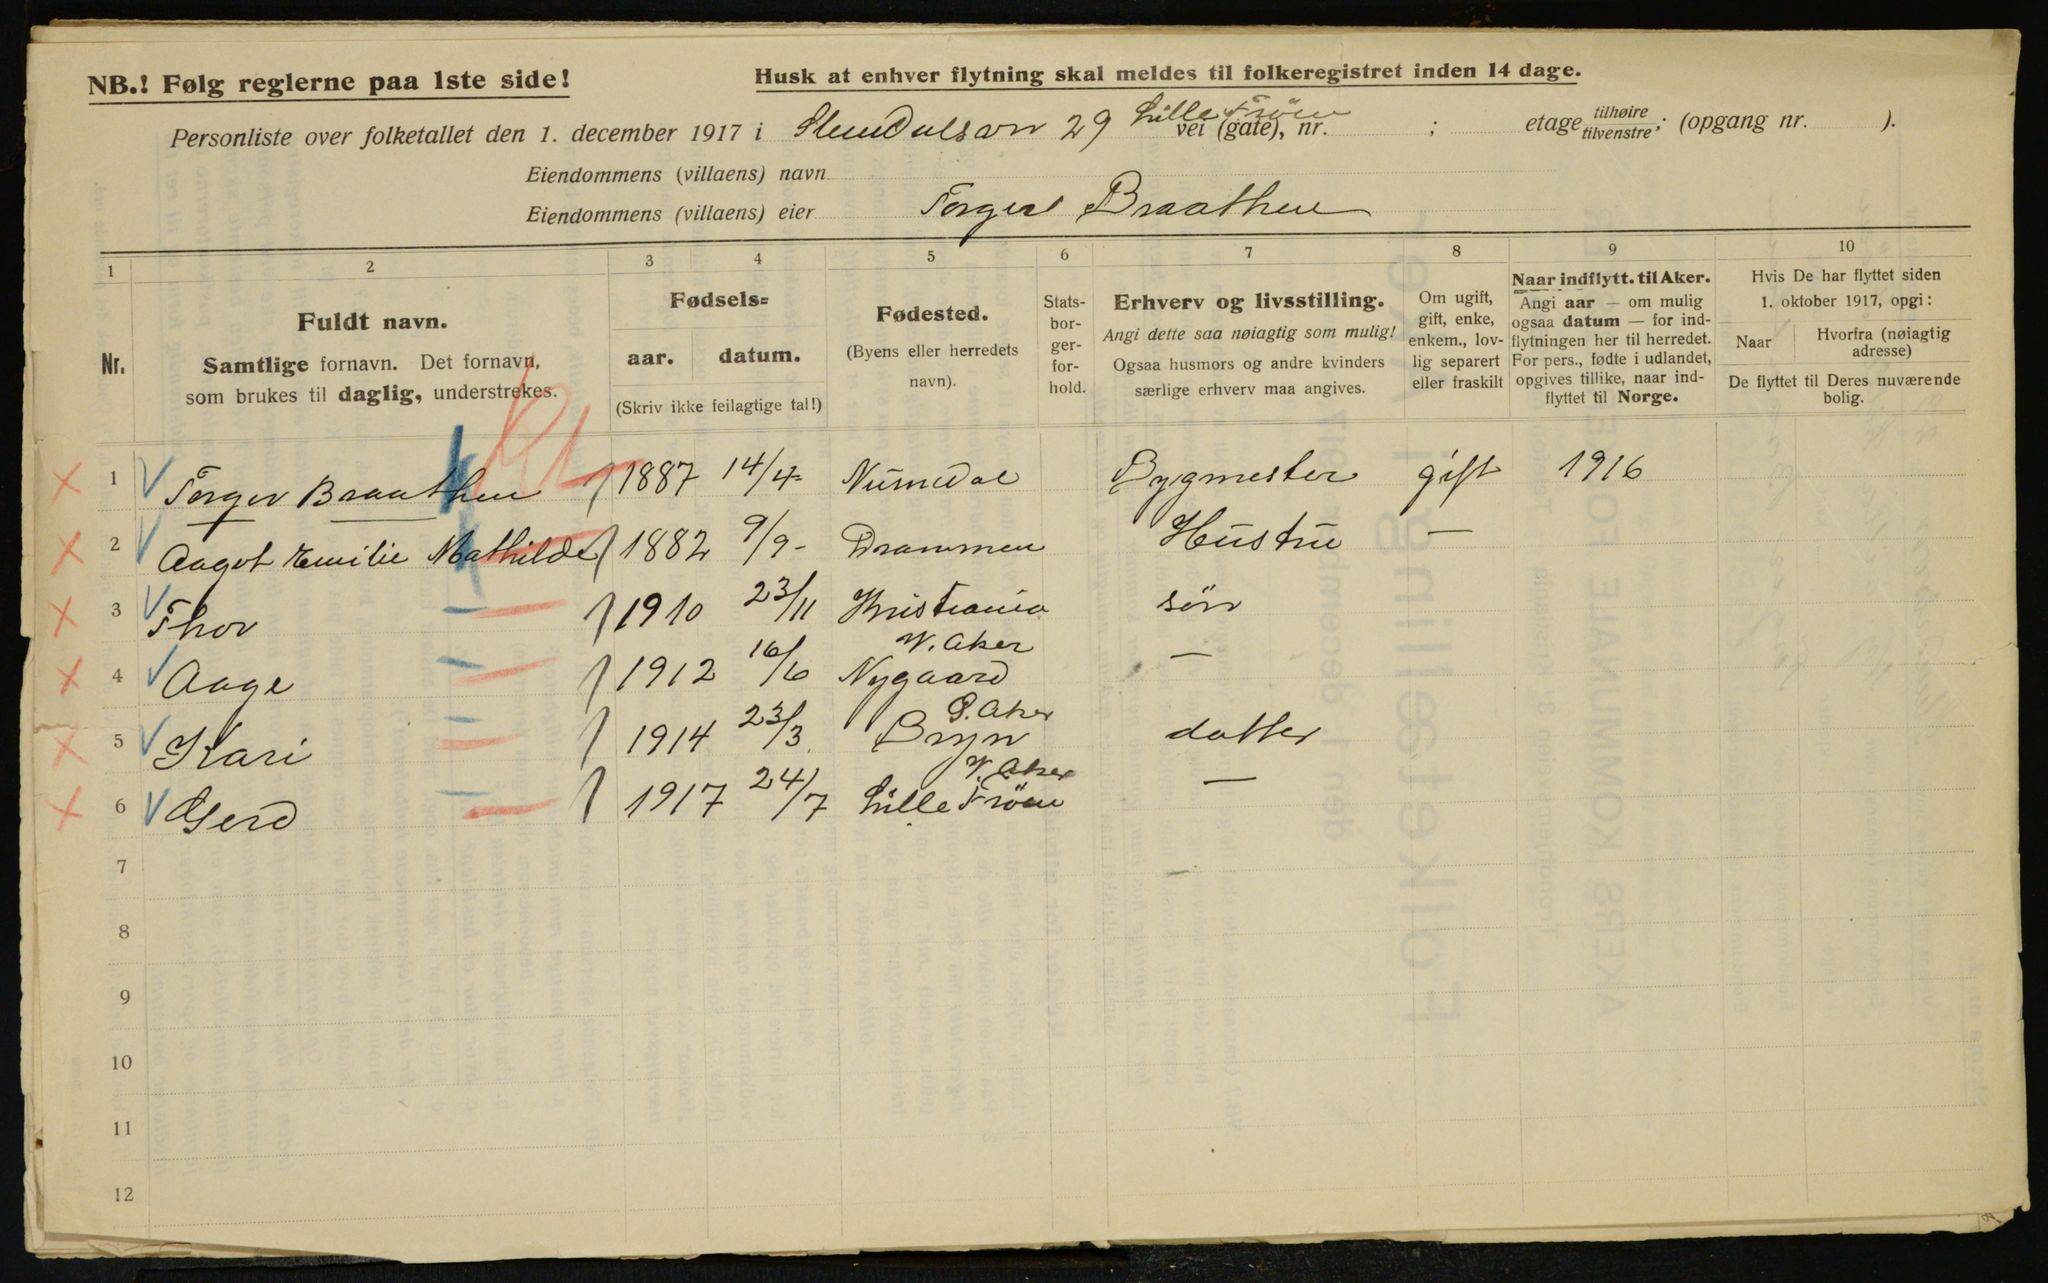 NB.! Følg reglerne paa 1ste side!
Husk at enhver flytning skal meldes til folkeregistret inden 14 dage.
Personliste over folketallet den 1. december 1917 i 29 Lille Frøen vei (gate), nr. ; etage tilhøire tilvenstre ; (opgang nr. ).
Eiendommens (villaens) navn
Eiendommens (villaens) eier Torger Braathen
1 2 3 4 5 6 7 8 9 10
Nr.
Fuldt navn.
Samtlige fornavn. Det fornavn,
som brukes til daglig, understrekes.
Fødsels=
aar. datum.
(Skriv ikke feilagtige tal!)
Fødested.
(Byens eller herredets
navn).
Stats-
bor-
ger-
for-
hold.
Erhverv og livsstilling.
Angi dette saa nøiagtig som mulig!
Ogsaa husmors og andre kvinders
særlige erhverv maa angives.
Om ugift,
gift, enke,
enkem., lov-
lig separert
eller fraskilt
Naar indflytt. til Aker.
Angi aar — om mulig
ogsaa datum — for ind-
flytningen her til herredet.
For pers., fødte i udlandet,
opgives tillike, naar ind-
flyttet til Norge.
Hvis De har flyttet siden
1. oktober 1917, opgi:
Naar
Hvorfra (nøiagtig
adresse)
De flyttet til Deres nuværende
bolig.
1 Torger Braathen 1887 14/4 Numedal Bygmester gift 1916
2 Aagot Emilie Mathilde 1882 9/9- Drammen Hustru —
3 Thor 1910 23/11 Kristiania søn
V. Aker
4 Aage 1912 16/6 Nygaard —
Ø. Aker
5 Kari 1914 23/3 Bryn datter
V. Aker
6 Gerd 1917 24/7 Lille Frøen —
7
8
9
10
11
12